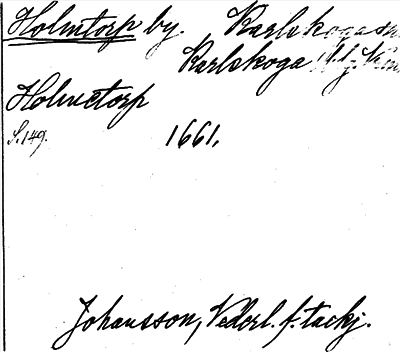 Holmtorp by. Karlskoga sn
Karlskoga
Holmetorp
S. 149. 1661.
Johansson, Vederl. f. tackj.